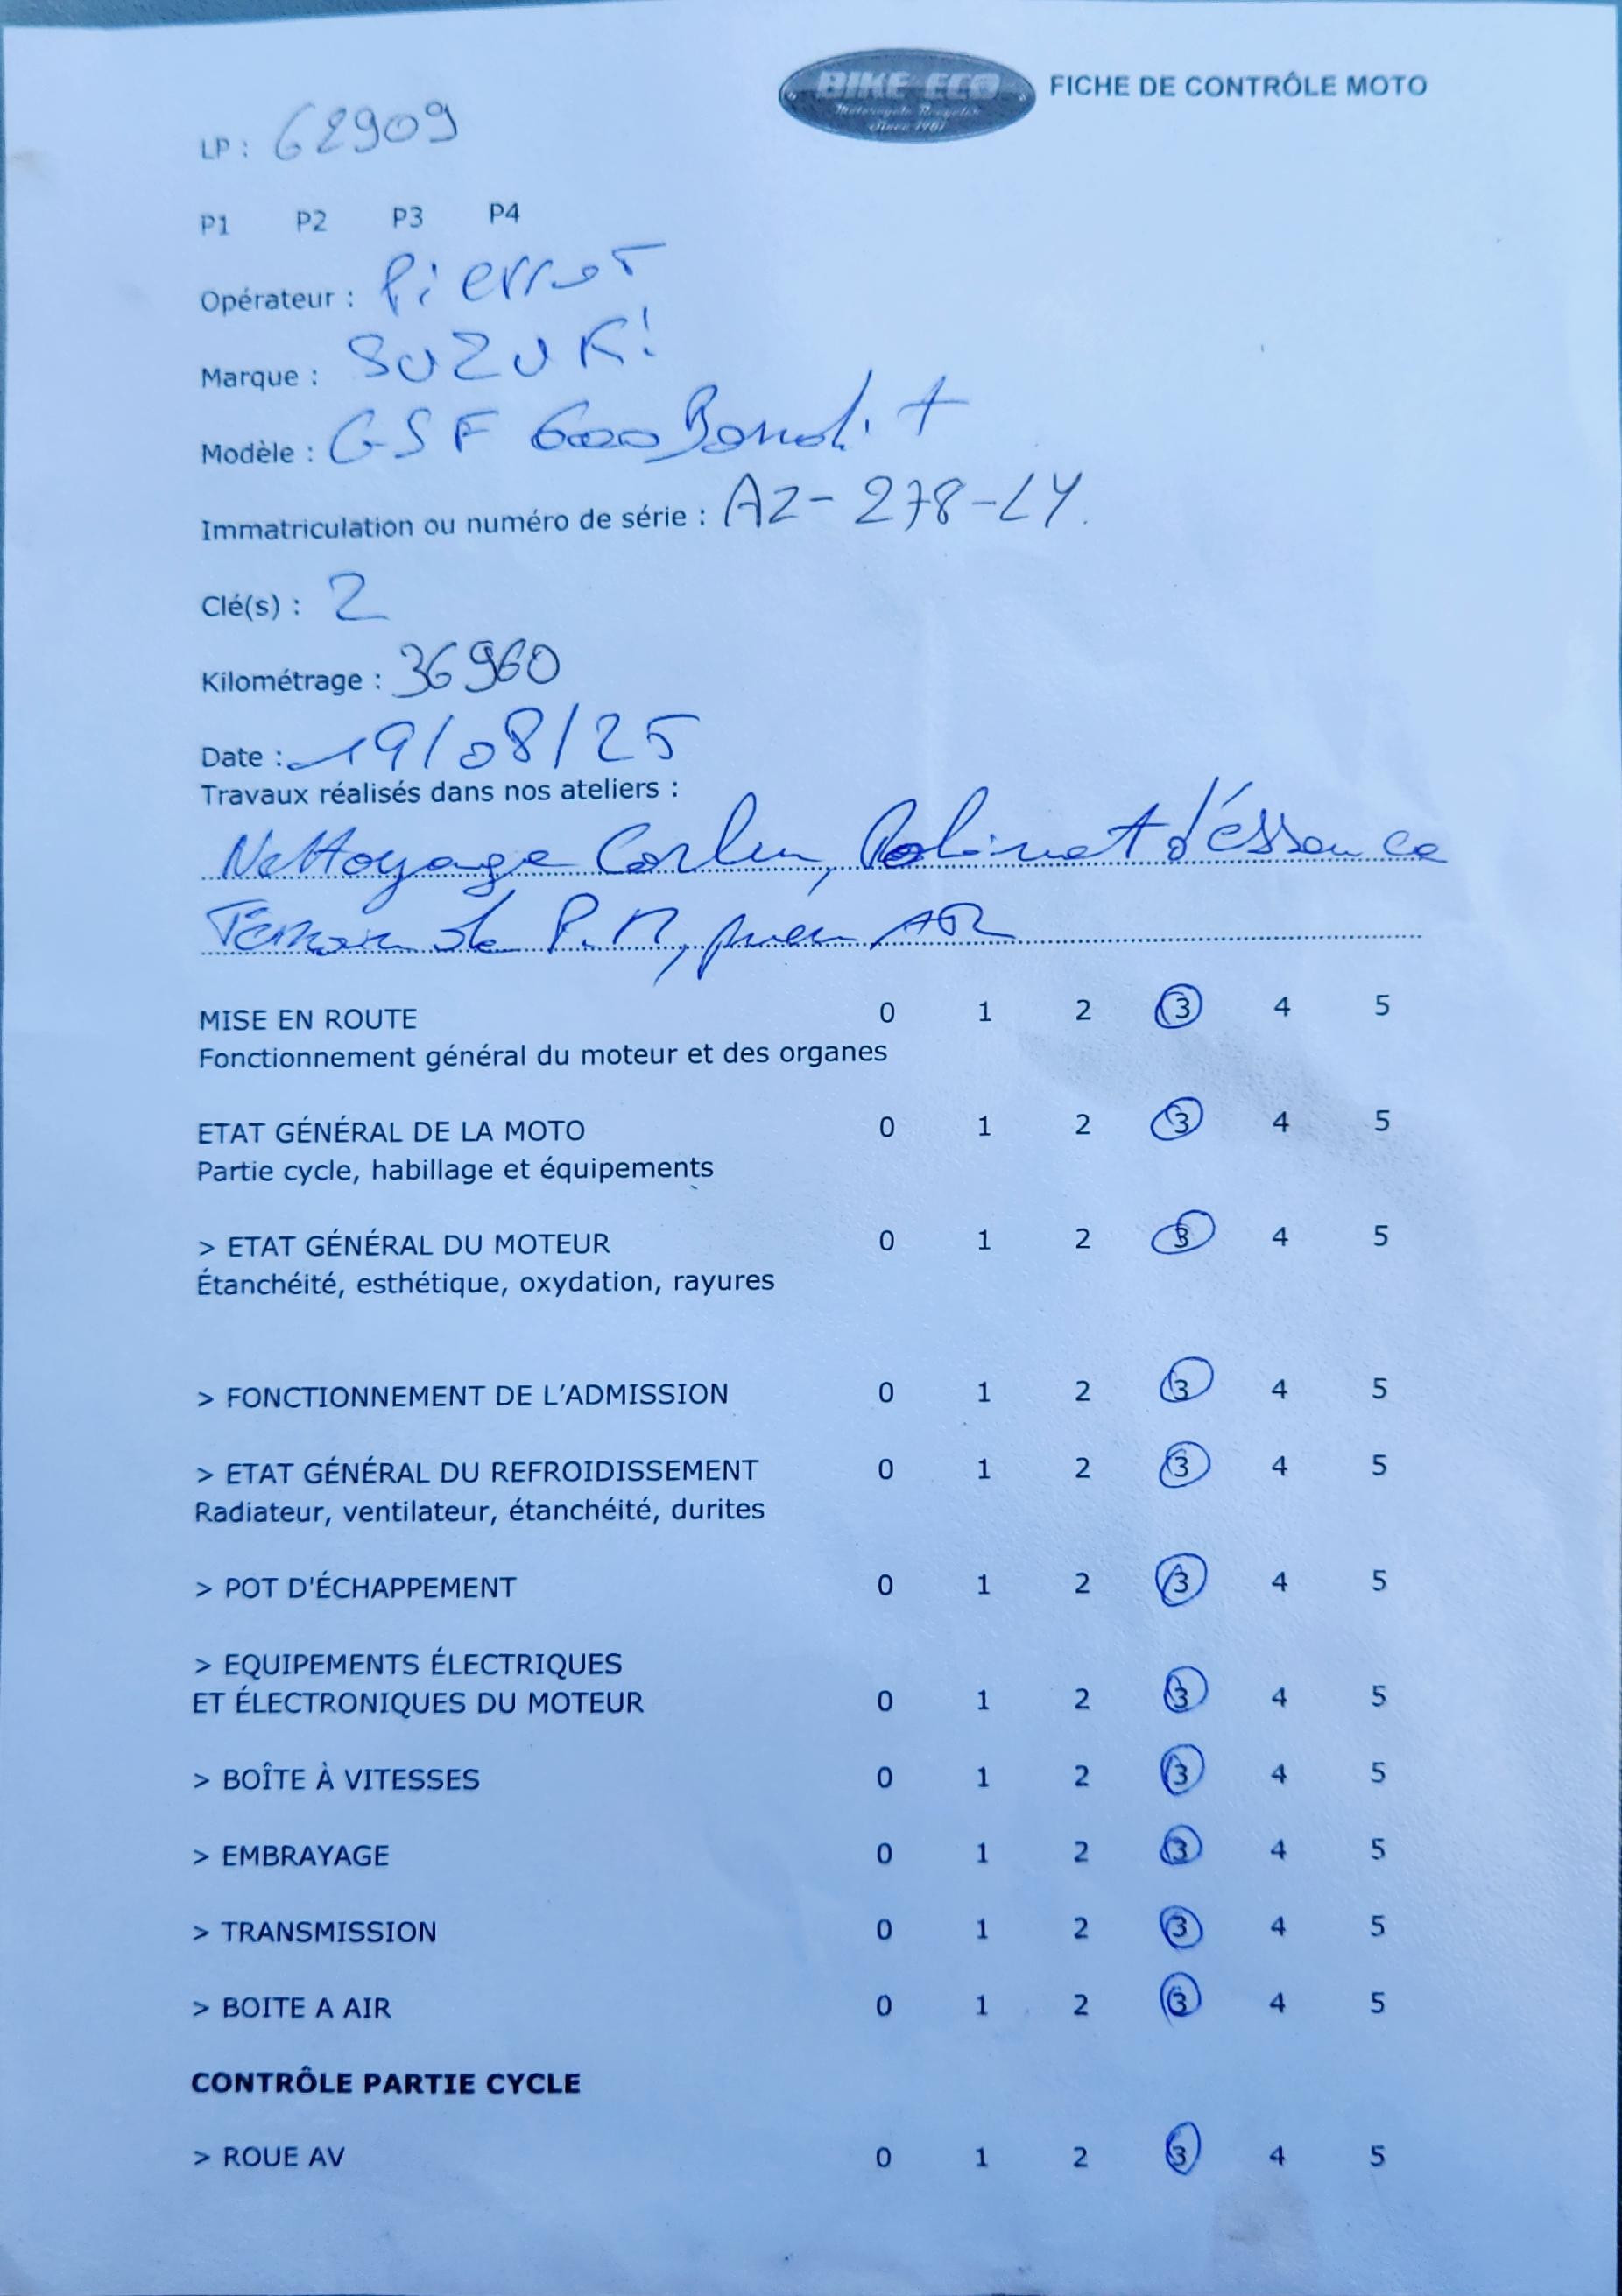 BIKE ECO
Motorcycle Recycler
Since 1987
FICHE DE CONTRÔLE MOTO
LP : 62909
P1 P2 P3 P4
Opérateur : Pierrot
Marque : SUZUKi
Modèle : GSF 600 Bandit
Immatriculation ou numéro de série : AZ-278-LY.
Clé(s) : 2
Kilométrage : 36960
Date : 19/08/25
Travaux réalisés dans nos ateliers :
Nettoyage Carbu, Robinet d'éssence
Témoin de P.M, pneu AR
MISE EN ROUTE 0 1 2 3 4 5
Fonctionnement général du moteur et des organes
ETAT GÉNÉRAL DE LA MOTO 0 1 2 3 4 5
Partie cycle, habillage et équipements
> ETAT GÉNÉRAL DU MOTEUR 0 1 2 3 4 5
Étanchéité, esthétique, oxydation, rayures
> FONCTIONNEMENT DE L'ADMISSION 0 1 2 3 4 5
> ETAT GÉNÉRAL DU REFROIDISSEMENT 0 1 2 3 4 5
Radiateur, ventilateur, étanchéité, durites
> POT D'ÉCHAPPEMENT 0 1 2 3 4 5
> EQUIPEMENTS ÉLECTRIQUES
ET ÉLECTRONIQUES DU MOTEUR 0 1 2 3 4 5
> BOÎTE À VITESSES 0 1 2 3 4 5
> EMBRAYAGE 0 1 2 3 4 5
> TRANSMISSION 0 1 2 3 4 5
> BOITE A AIR 0 1 2 3 4 5
CONTRÔLE PARTIE CYCLE
> ROUE AV 0 1 2 3 4 5